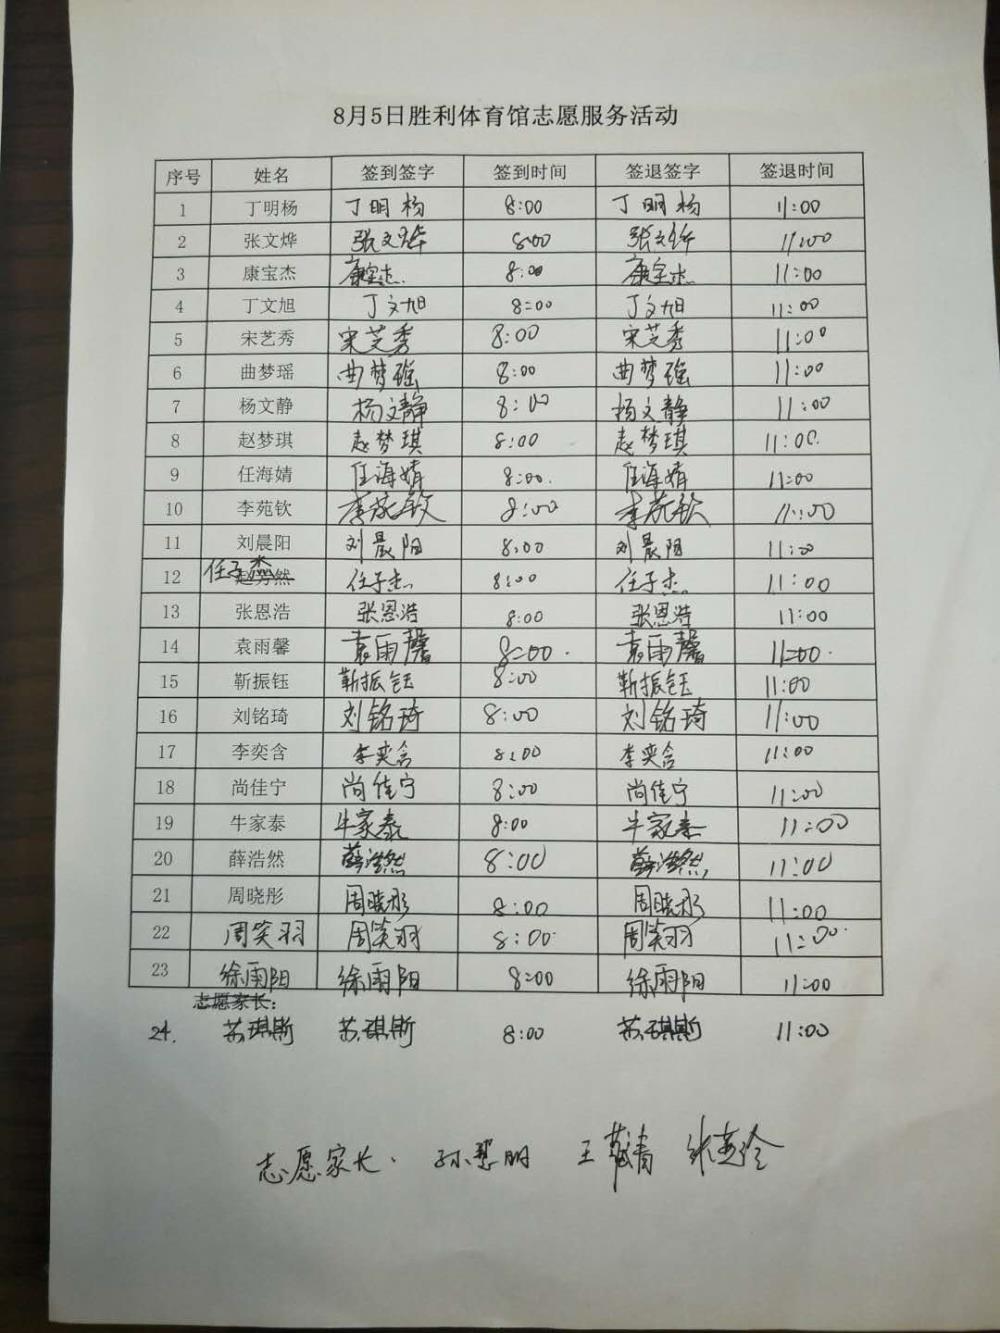 8月5日胜利体育馆志愿服务活动
序号 姓名 签到签字 签到时间 签退签字 签退时间
1 丁明杨 丁明杨 8:00 丁明杨 11:00
2 张文烨 张文烨 8:00 张文烨 11:00
3 康宝杰 康宝杰 8:00 康宝杰 11:00
4 丁文旭 丁文旭 8:00 丁文旭 11:00
5 宋艺秀 宋芝秀 8:00 宋芝秀 11:00
6 曲梦瑶 曲梦瑶 8:00 曲梦瑶 11:00
7 杨文静 杨文静 8:00 杨文静 11:00
8 赵梦琪 赵梦琪 8:00 赵梦琪 11:00
9 任海婧 任海婧 8:00 任海婧 11:00
10 李苑钦 李苑钦 8:00 李苑钦 11:00
11 刘晨阳 刘晨阳 8:00 刘晨阳 11:00
12 任子杰 任子杰 8:00 任子杰 11:00
13 张恩浩 张恩浩 8:00 张恩浩 11:00
14 袁雨馨 袁雨馨 8:00 袁雨馨 11:00
15 靳振钰 靳振钰 8:00 靳振钰 11:00
16 刘铭琦 刘铭琦 8:00 刘铭琦 11:00
17 李奕含 李奕含 8:00 李奕含 11:00
18 尚佳宁 尚佳宁 8:00 尚佳宁 11:00
19 牛家泰 牛家泰 8:00 牛家泰 11:00
20 薛浩然 薛浩然 8:00 薛浩然 11:00
21 周晓彤 周晓彤 8:00 周晓彤 11:00
22 周笑羽 周笑羽 8:00 周笑羽 11:00
23 徐雨阳 徐雨阳 8:00 徐雨阳 11:00
志愿家长:
24. 苏琪斯 苏琪斯 8:00 苏琪斯 11:00
志愿家长. 孙慧明